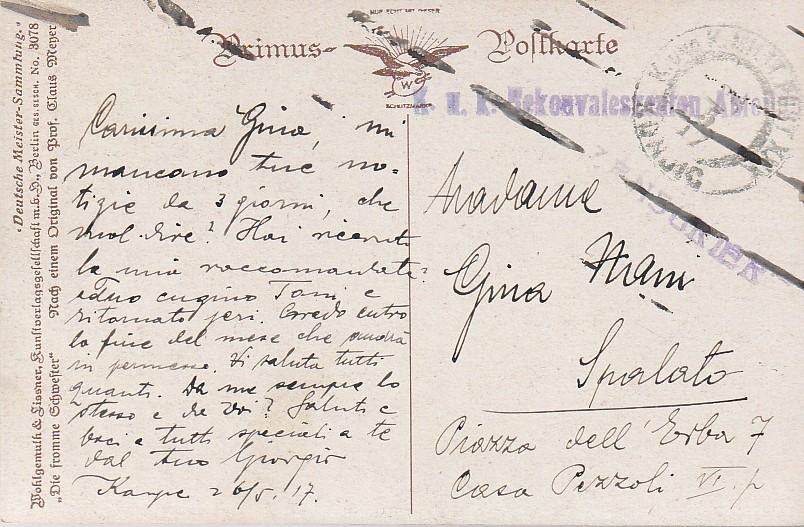 NUR ECHT MIT DIESER
Primus-Postkarte
W
SCHUTZMARKE
K. u. k. Rekonvaleszenten Abteil
Carissima Gina, mi
mancono tue no-
tizie da 3 giorni, che
vuol dire? Hai ricevuto
la mia raccomandata?
Tuo cugino Toni e
ritornato jeri. Credo entro
la fine del mese che
in permesso. Vi saluta tutti
quanti. Da me sempre lo
stesso e da Voi? Saluti e
baci a tutti speciali a te
dal tuo Giorgio
26/5. 17.
Madame
Gina Mani
Spalato
Piazza dell' Erba 7
Casa Pezzoli VI. p
„Deutsche Meister-Sammlung.“
Wohlgemuth & Lissner, Kunstverlagsgesellschaft m.b.H., Berlin GES. GESCH. No. 3078
„Die fromme Schwester“ Nach einem Original von Prof. Claus Meyer